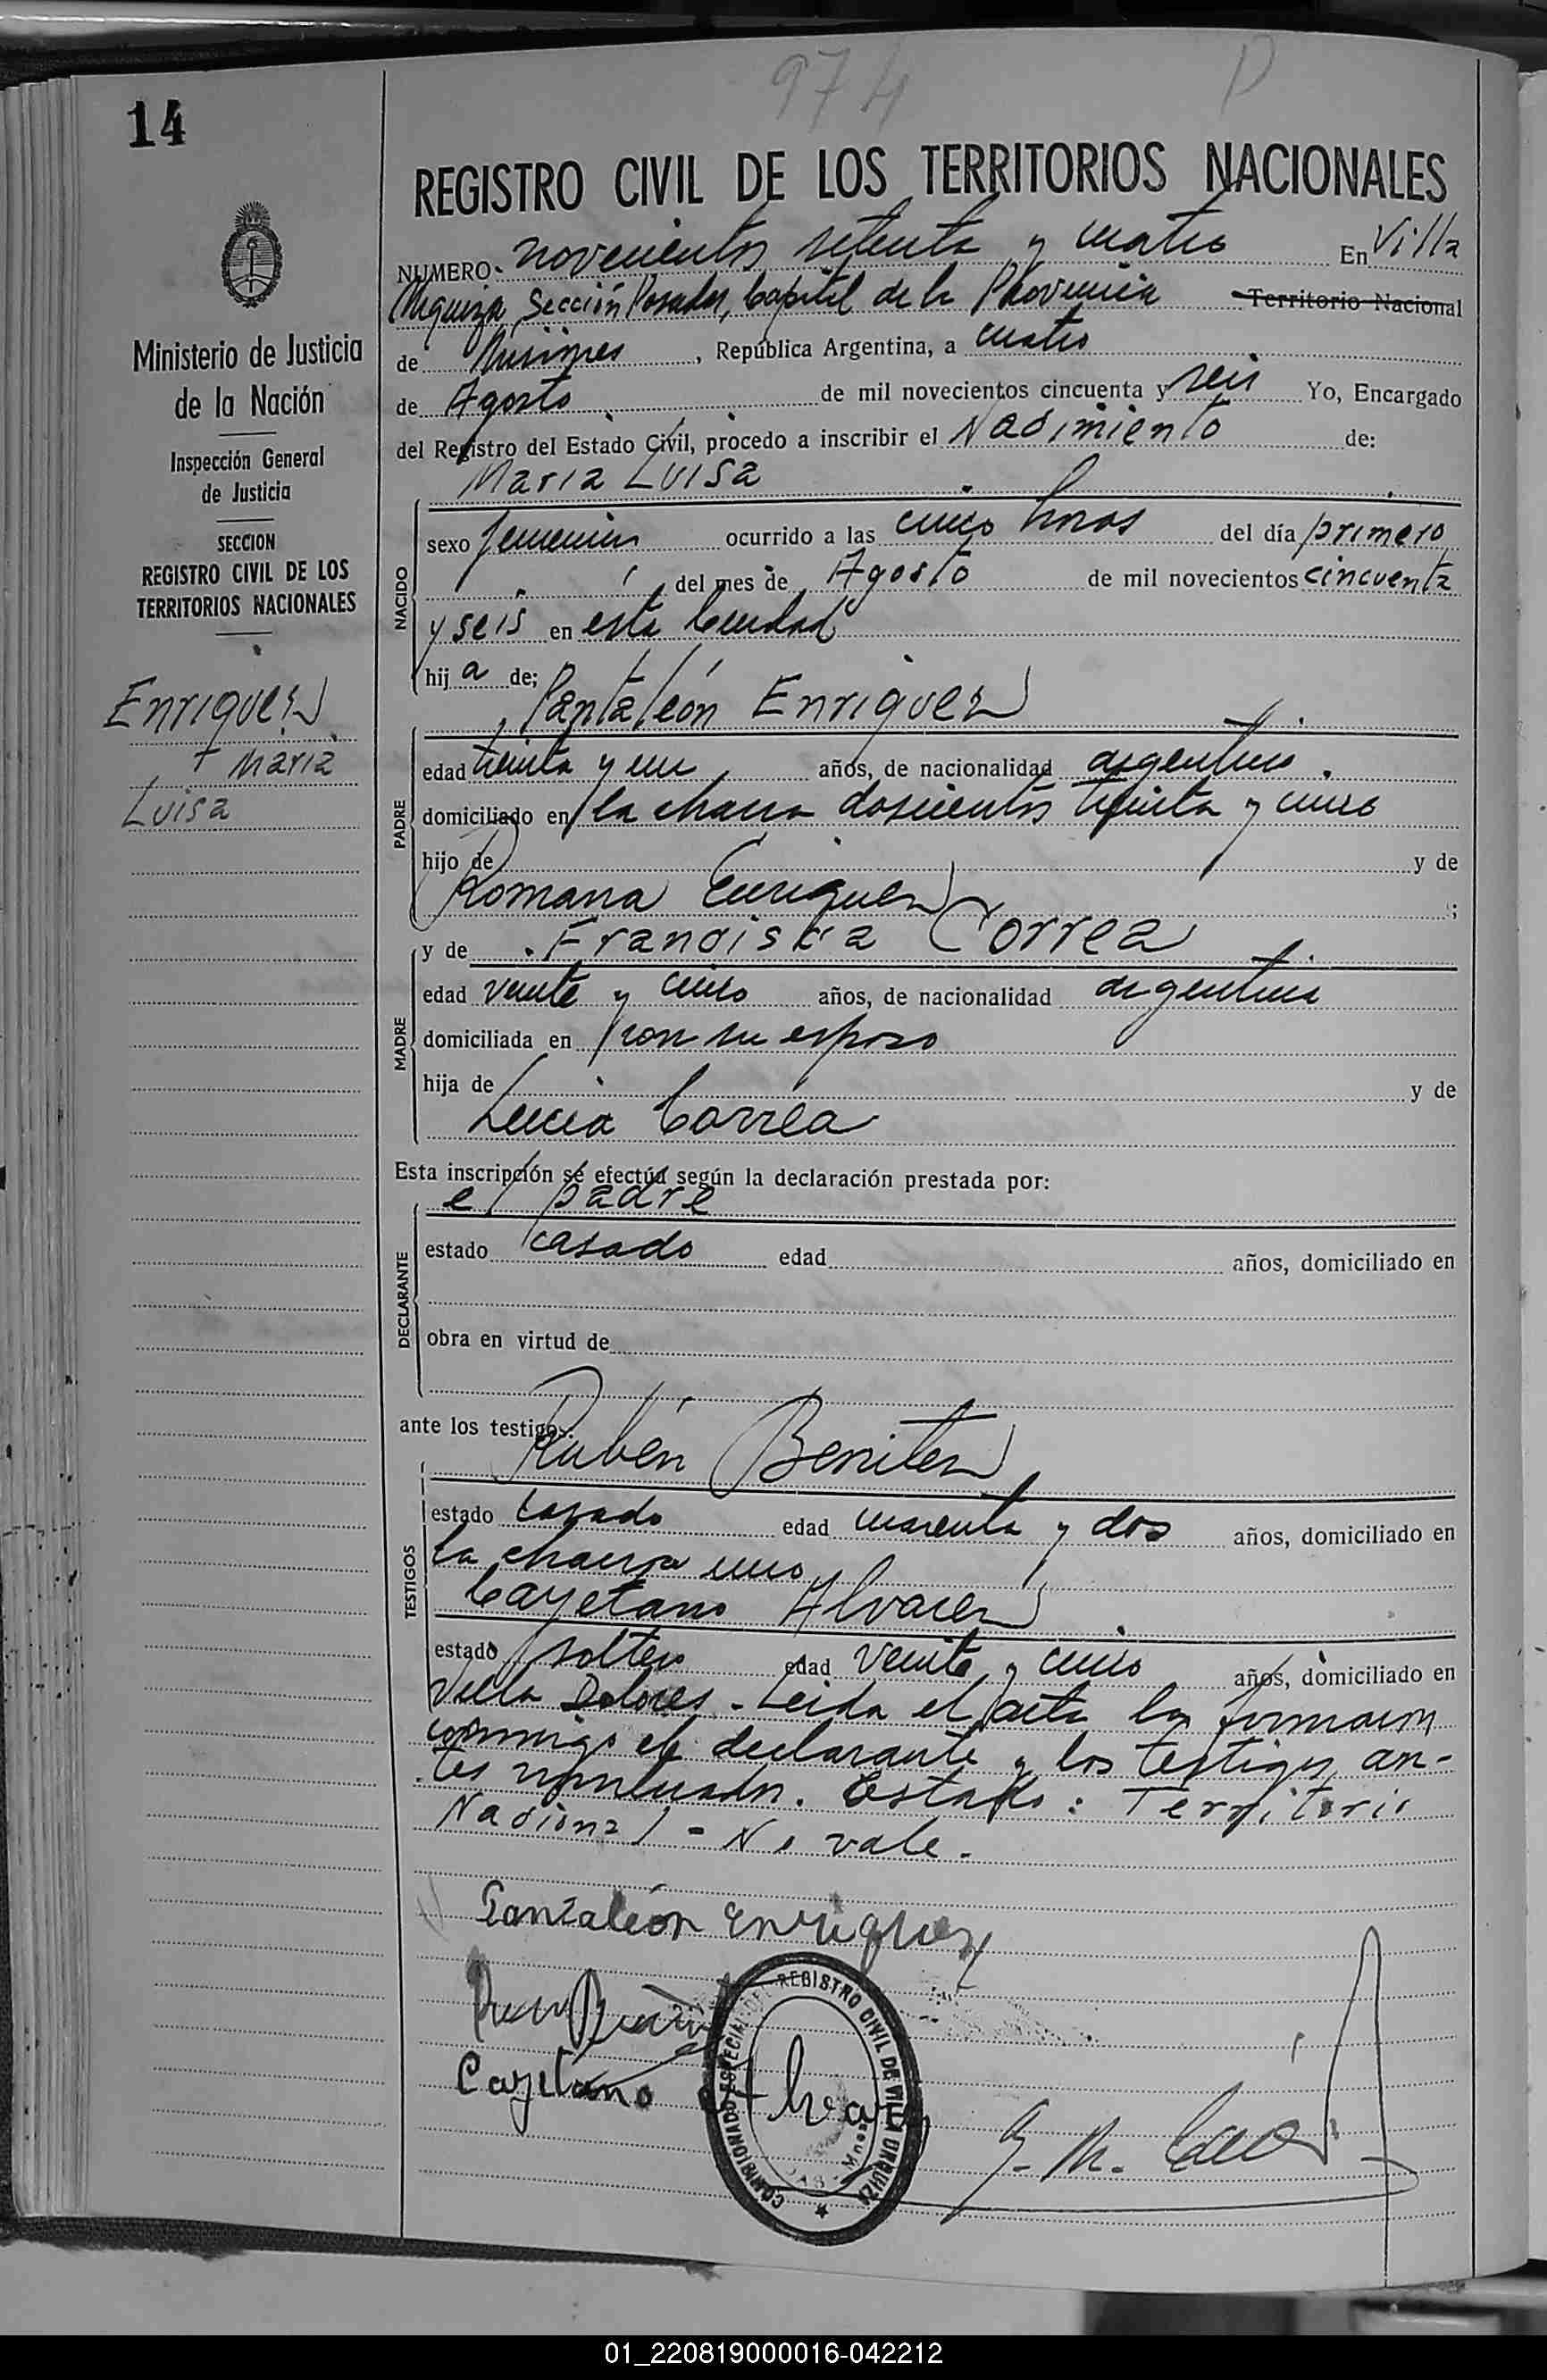 974 D
14
REGISTRO CIVIL DE LOS TERRITORIOS NACIONALES
NUMERO novecientos setenta y cuatro En Villa
Urquiza, Sección Posadas, Capital de la Provincia Territorio Nacional
de Misiones, República Argentina, a cuatro
de Agosto de mil novecientos cincuenta y seis Yo, Encargado
del Registro del Estado Civil, procedo a inscribir el Nacimiento de:
Maria Luisa
Ministerio de Justicia
de la Nación
Inspección General
de Justicia
SECCION
REGISTRO CIVIL DE LOS
TERRITORIOS NACIONALES
Enriquez
Maria
Luisa
NACIDO
sexo femenino ocurrido a las cinco horas del día primero
del mes de Agosto de mil novecientos cincuenta
y seis en esta Ciudad
hij a de;
Pantaleón Enriquez
PADRE
edad treinta y un años, de nacionalidad argentino.
domiciliado en la chacra doscientos treinta y cinco
hijo de y de
Romana Enriquez ;
y de Francisca Correa
MADRE
edad veinte y cinco años, de nacionalidad argentina
domiciliada en con su esposo
hija de y de
Lucia Correa
Esta inscripción se efectúa según la declaración prestada por:
el padre
DECLARANTE
estado casado edad años, domiciliado en
obra en virtud de
ante los testigos:
Rubén Benitez
TESTIGOS
estado casado edad cuarenta y dos años, domiciliado en
la chacra uno
Cayetano Alvarez
estado soltero edad veinte y cinco años, domiciliado en
Villa Dolores - Leida el acta la firmaron
conmigo el declarante y los testigos an-
tes nombrados. Estado: Territorio
Nacional - No vale.
Pantaleón Enriquez
Cayetano Alvarez
COMISIONADO ESPECIAL DEL REGISTRO CIVIL DE VILLA URQUIZA
01_220819000016-042212